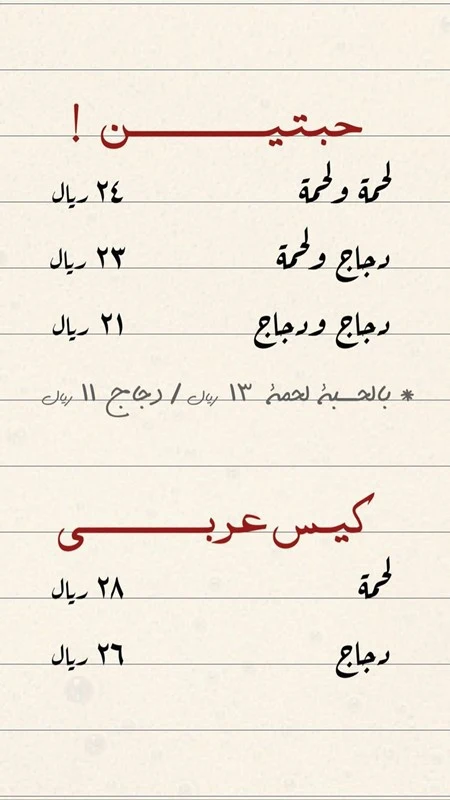 حبتيـــــن !
لحمة ولحمة ٢٤ ريال
دجاج ولحمة ٢٣ ريال
دجاج ودجاج ٢١ ريال
* بالحسبة لحمة ١٣ ريال / دجاج ١١ ريال
كيس عربـــــي
لحمة ٢٨ ريال
دجاج ٢٦ ريال